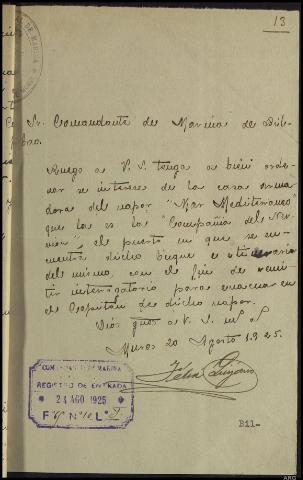 13
Sr. Comandante de Marina de Bil-
bao.
Ruego a V.S. tenga a bien orde-
nar se interese de la casa arma-
dora del vapor "Mar Mediterraneo"
que lo es la "Compañia del Ner-
vion", el puerto en que se en-
cuentra dicho buque e itinerario
del mismo, con el fin de remi-
tir interrogatorio para evacuar en
el Capitan de dicho vapor.
Dios gue a V.S. ms as
Muros 20 Agosto 1925.
COMANDANCIA DE MARINA
REGISTRO DE ENTRADA
* 24 AGO 1925 *
Fº Nº Lº
Bil-